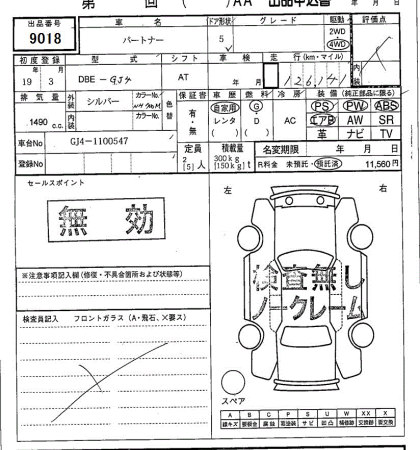 第 回 ( )AA 出品申込書 年 月 日
出品番号 車名 ドア形状 グレード 駆動 評価点
9018 パートナー 5 2WD 4WD
内装
初度登録 型式 シフト 車検 走行(km・マイル)
19年 3月 DBE-GJ4 AT 年 月 126,141
排気量 外装 シルバー カラーNo. 色替 保証書 車歴 燃料 冷房 装備(純正部品に限る)
1490 c.c. 内装 カラーNo. 有・無 自家用 レンタ ( ) G・D ( ) AC PS PW ABS
エアB AW SR
革 ナビ TV
車台No GJ4-1100547
定員 積載量 名変期限 年 月 日
2 [5]人 300kg [150kg] t R料金 未預託・預託済 11,560円
登録No
セールスポイント
無効
左 右
※注意事項記入欄(修復・不具合箇所および状態等)
検査無し
ノークレーム
検査員記入 フロントガラス(A・飛石、×要ス)
スペア
A B C P S U W X XX
線キズ 腐蝕 サビ 凹凸 補修跡